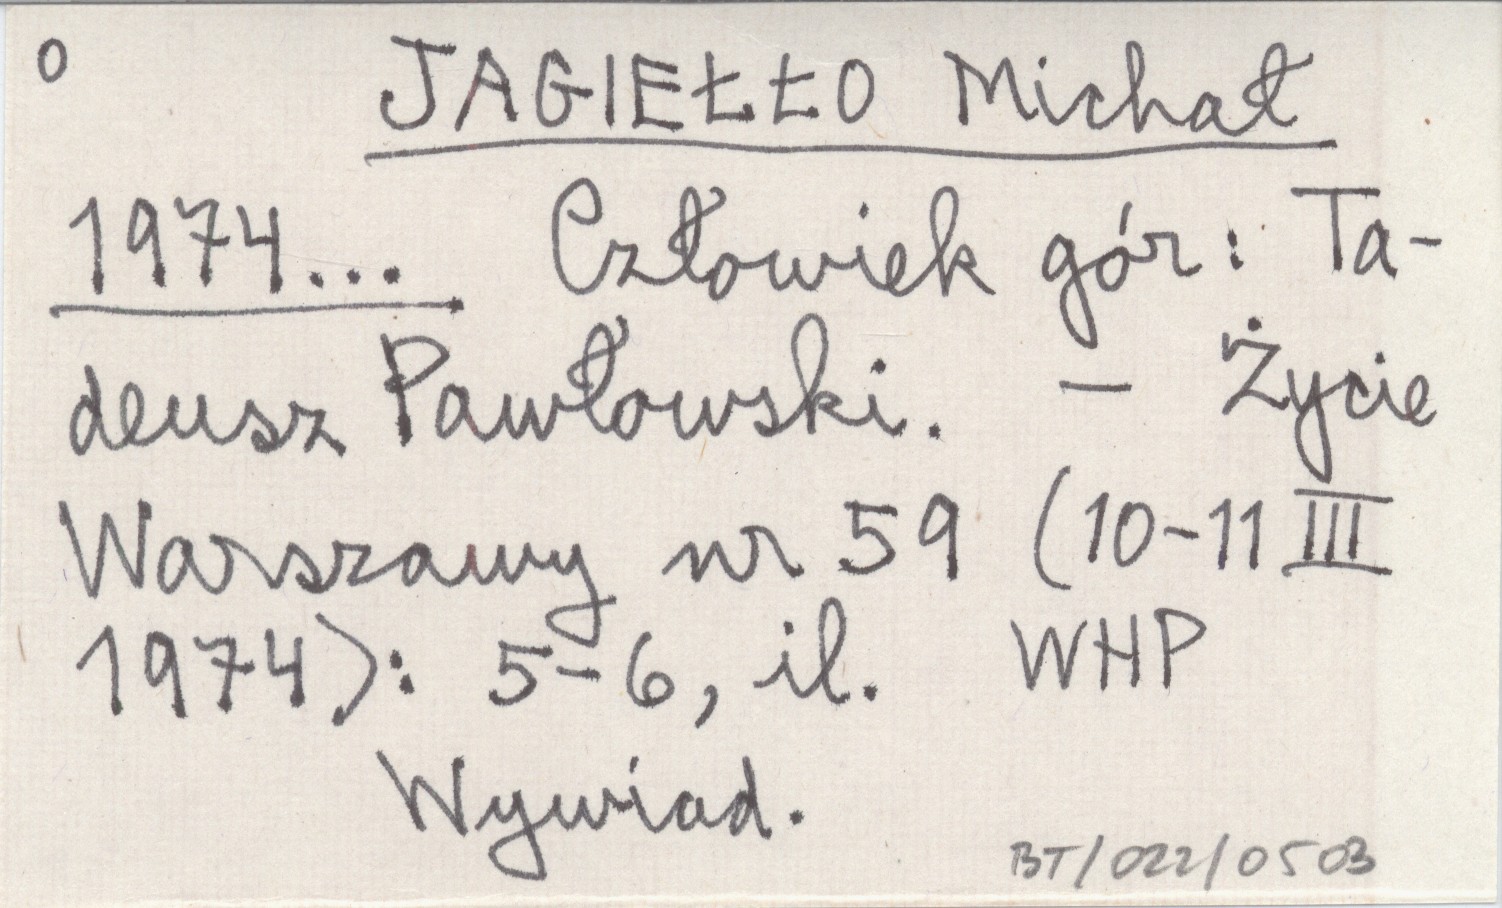 0 JAGIEŁŁO Michał
1974... Człowiek gór: Ta-
deusz Pawłowski. – Życie
Warszawy nr 59 (10-11 III
1974): 5-6, il. WHP
Wywiad.
BT/022/0503